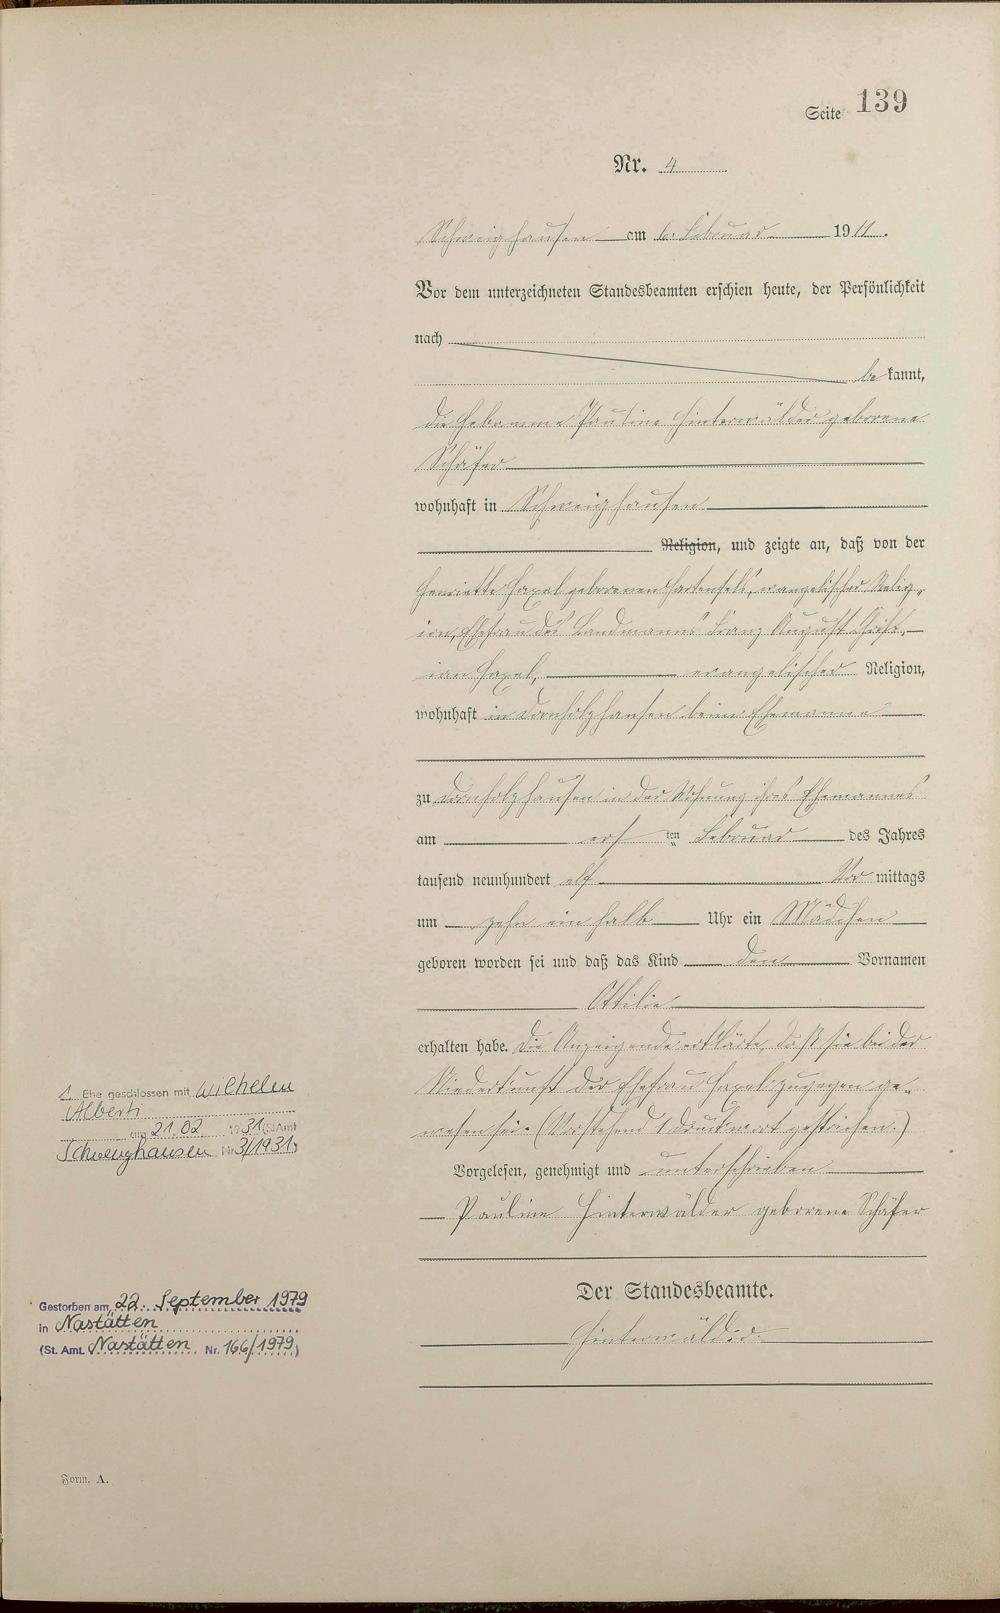 Seite 139
Nr. 4
Schweighausen am 6. Februar 1911.
Vor dem unterzeichneten Standesbeamten erschien heute, der Persönlichkeit
nach
be kannt,
die Hebamme Pauline Hinterwälder geborene
Schäfer
wohnhaft in Schweighausen
Religion, und zeigte an, daß von der
Henriette Haxel geborenen Hartenfels, evangelischer Relig-
ion, Ehefrau des Landmanns Franz August Christ-
ian Haxel, evangelischer Religion,
wohnhaft in Dornholzhausen beim Ehemanne
zu Dornholzhausen in der Wohnung ihres Ehemannes
am ersten Februar des Jahres
tausend neunhundert elf Vor mittags
um zehn ein halb Uhr ein Mädchen
geboren worden sei und daß das Kind den Vornamen
Ottilie
erhalten habe. Die Anzeigende erklärte, daß sie bei der
Niederkunft der Ehefrau Haxel zugegen ge-
wesen sei. (Vorstehend 1 Druckwort gestrichen.)
Vorgelesen, genehmigt und unterschrieben
Pauline Hinterwälder geborene Schäfer
Der Standesbeamte.
Hinterwälder
1. Ehe geschlossen mit Wilhelm
Alberti
am 21.02 1931 (StAmt
Schweighausen Nr. 3/1931)
Gestorben am 22. September 1979
in Nastätten
(St. Amt. Nastätten Nr. 166/1979)
Form. A.